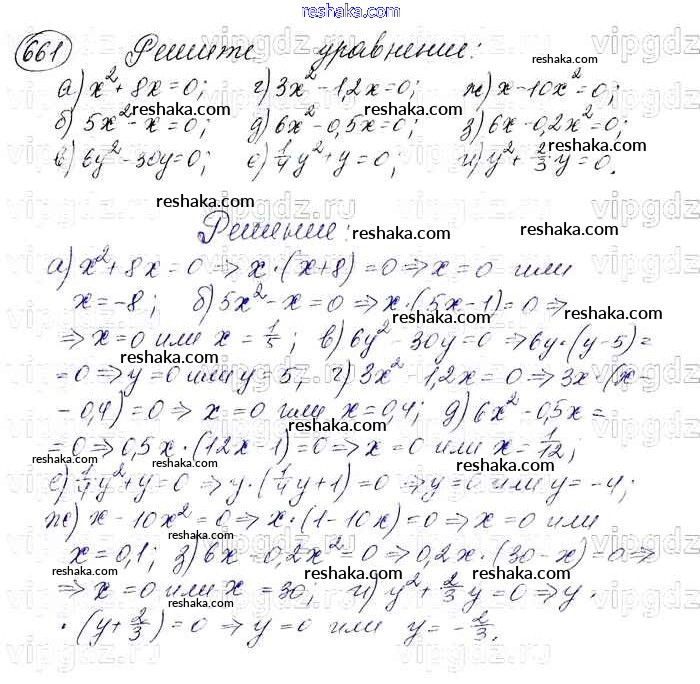 reshaka.com
661 Решите уравнение:
а) x² + 8x = 0; г) 3x² - 1,2x = 0; ж) x - 10x² = 0;
б) 5x² - x = 0; д) 6x² - 0,5x = 0; з) 6x - 0,2x² = 0;
в) 6y² - 30y = 0; е) 1/4 y² + y = 0; и) y² + 2/3 y = 0.
Решение:
а) x² + 8x = 0 ⇒ x · (x + 8) = 0 ⇒ x = 0 или
x = -8; б) 5x² - x = 0 ⇒ x · (5x - 1) = 0 ⇒
⇒ x = 0 или x = 1/5; в) 6y² - 30y = 0 ⇒ 6y · (y - 5) =
= 0 ⇒ y = 0 или y = 5; г) 3x² - 1,2x = 0 ⇒ 3x · (x
- 0,4) = 0 ⇒ x = 0 или x = 0,4; д) 6x² - 0,5x =
= 0 ⇒ 0,5x · (12x - 1) = 0 ⇒ x = 0 или x = 1/12;
е) 1/4 y² + y = 0 ⇒ y · (1/4 y + 1) = 0 ⇒ y = 0 или y = -4;
ж) x - 10x² = 0 ⇒ x · (1 - 10x) = 0 ⇒ x = 0 или
x = 0,1; з) 6x - 0,2x² = 0 ⇒ 0,2x · (30 - x) = 0 ⇒
⇒ x = 0 или x = 30; и) y² + 2/3 y = 0 ⇒ y ·
· (y + 2/3) = 0 ⇒ y = 0 или y = -2/3.